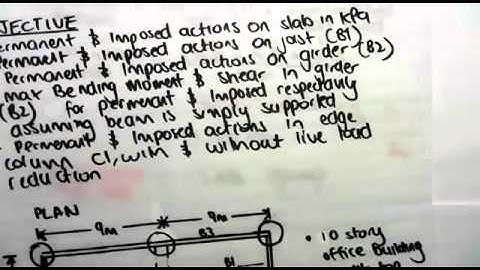 JECTIVE
ermanent & Imposed actions on slab in kPa
ermanent & Imposed actions on joist (B1)
Permanent & Imposed actions on girder (B2)
max Bending moment & shear in girder
(B2) for permenant & Imposed respectively
assuming beam is simply supported
Permenant & Imposed actions in edge
column C1, with & without live load
reduction
PLAN
9m
9m
B3
B1
• 10 story
office Building